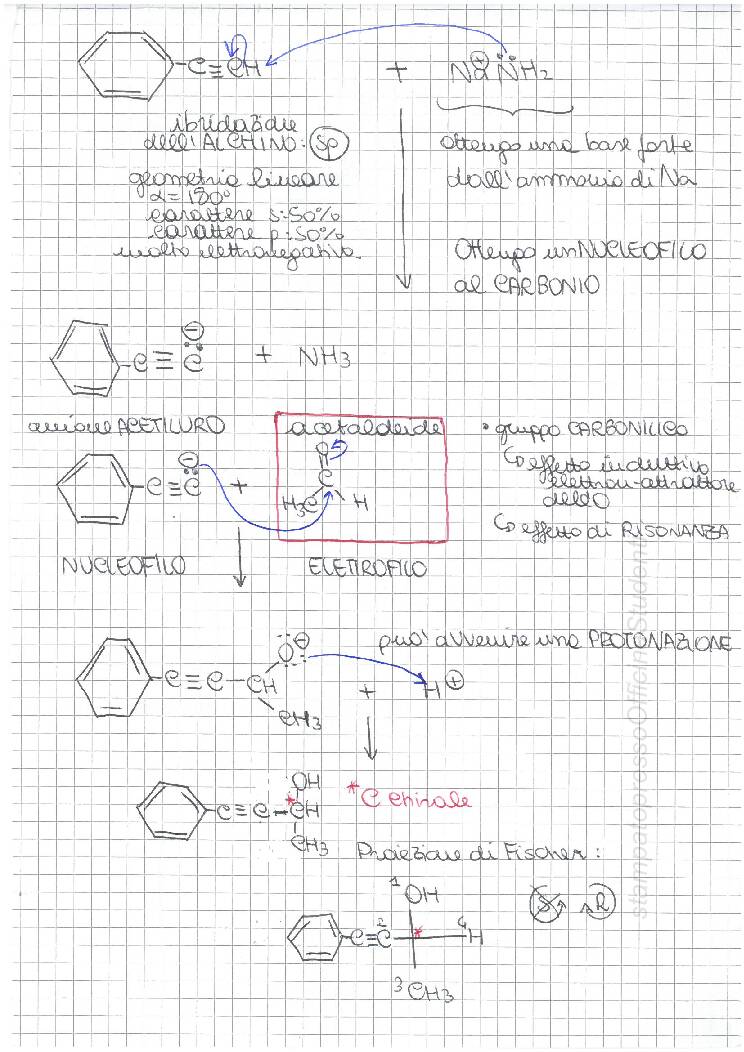 C≡CH + Na⊕ N̈H2
ibridazione
dell'ALCHINO: sp
geometria lineare
α=180°
carattere s:50%
carattere p:50%
molto elettronegativo.
Ottengo una base forte
dall'ammonio di Na
Ottengo un NUCLEOFILO
al CARBONIO
C ≡ C⊖ + NH3
anione ACETILURO
acetaldeide
• gruppo CARBONILICO
↳ effetto induttivo
elettron-attrattore
dell'O
↳ effetto di RISONANZA
C≡C⊖ +
O
C
H3C H
NUCLEOFILO
ELETTROFILO
può avvenire una PROTONAZIONE
O⊖
C≡C-CH + H⊕
CH3
OH
C≡C-*CH
CH3
*C chirale
Proiezione di Fischer:
1 OH
C≡C 2 * 4 H
3 CH3
S R
stampatopressoOfficinaStudenti